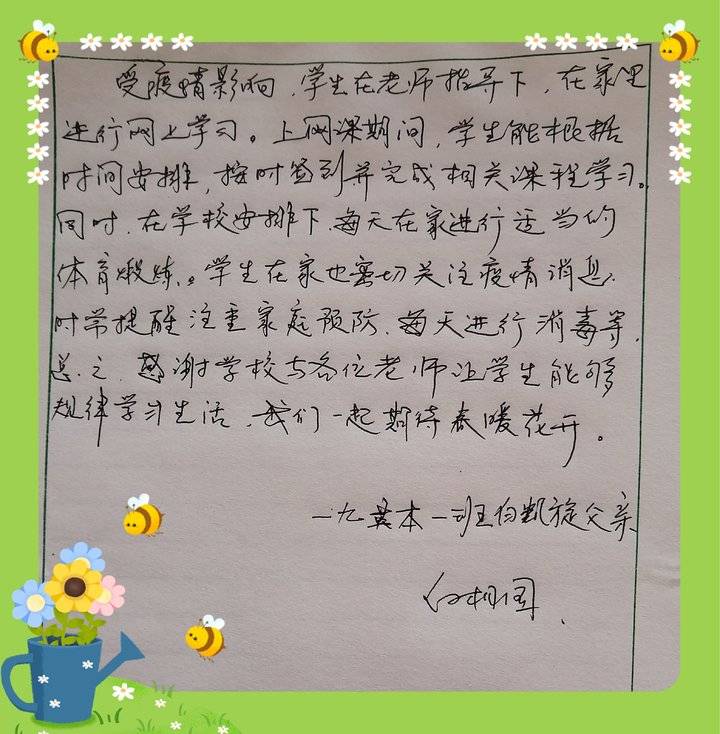 受疫情影响,学生在老师指导下,在家里
进行网上学习。上网课期间,学生能根据
时间安排,按时签到并完成相关课程学习。
同时,在学校安排下,每天在家进行适当的
体育煅炼。学生在家也密切关注疫情消息,
时常提醒注重家庭预防,每天进行消毒等,
总之,感谢学校与各位老师让学生能够
规律学习生活,我们一起期待春暖花开。
一九英本一班白凯旋父亲
白相国.